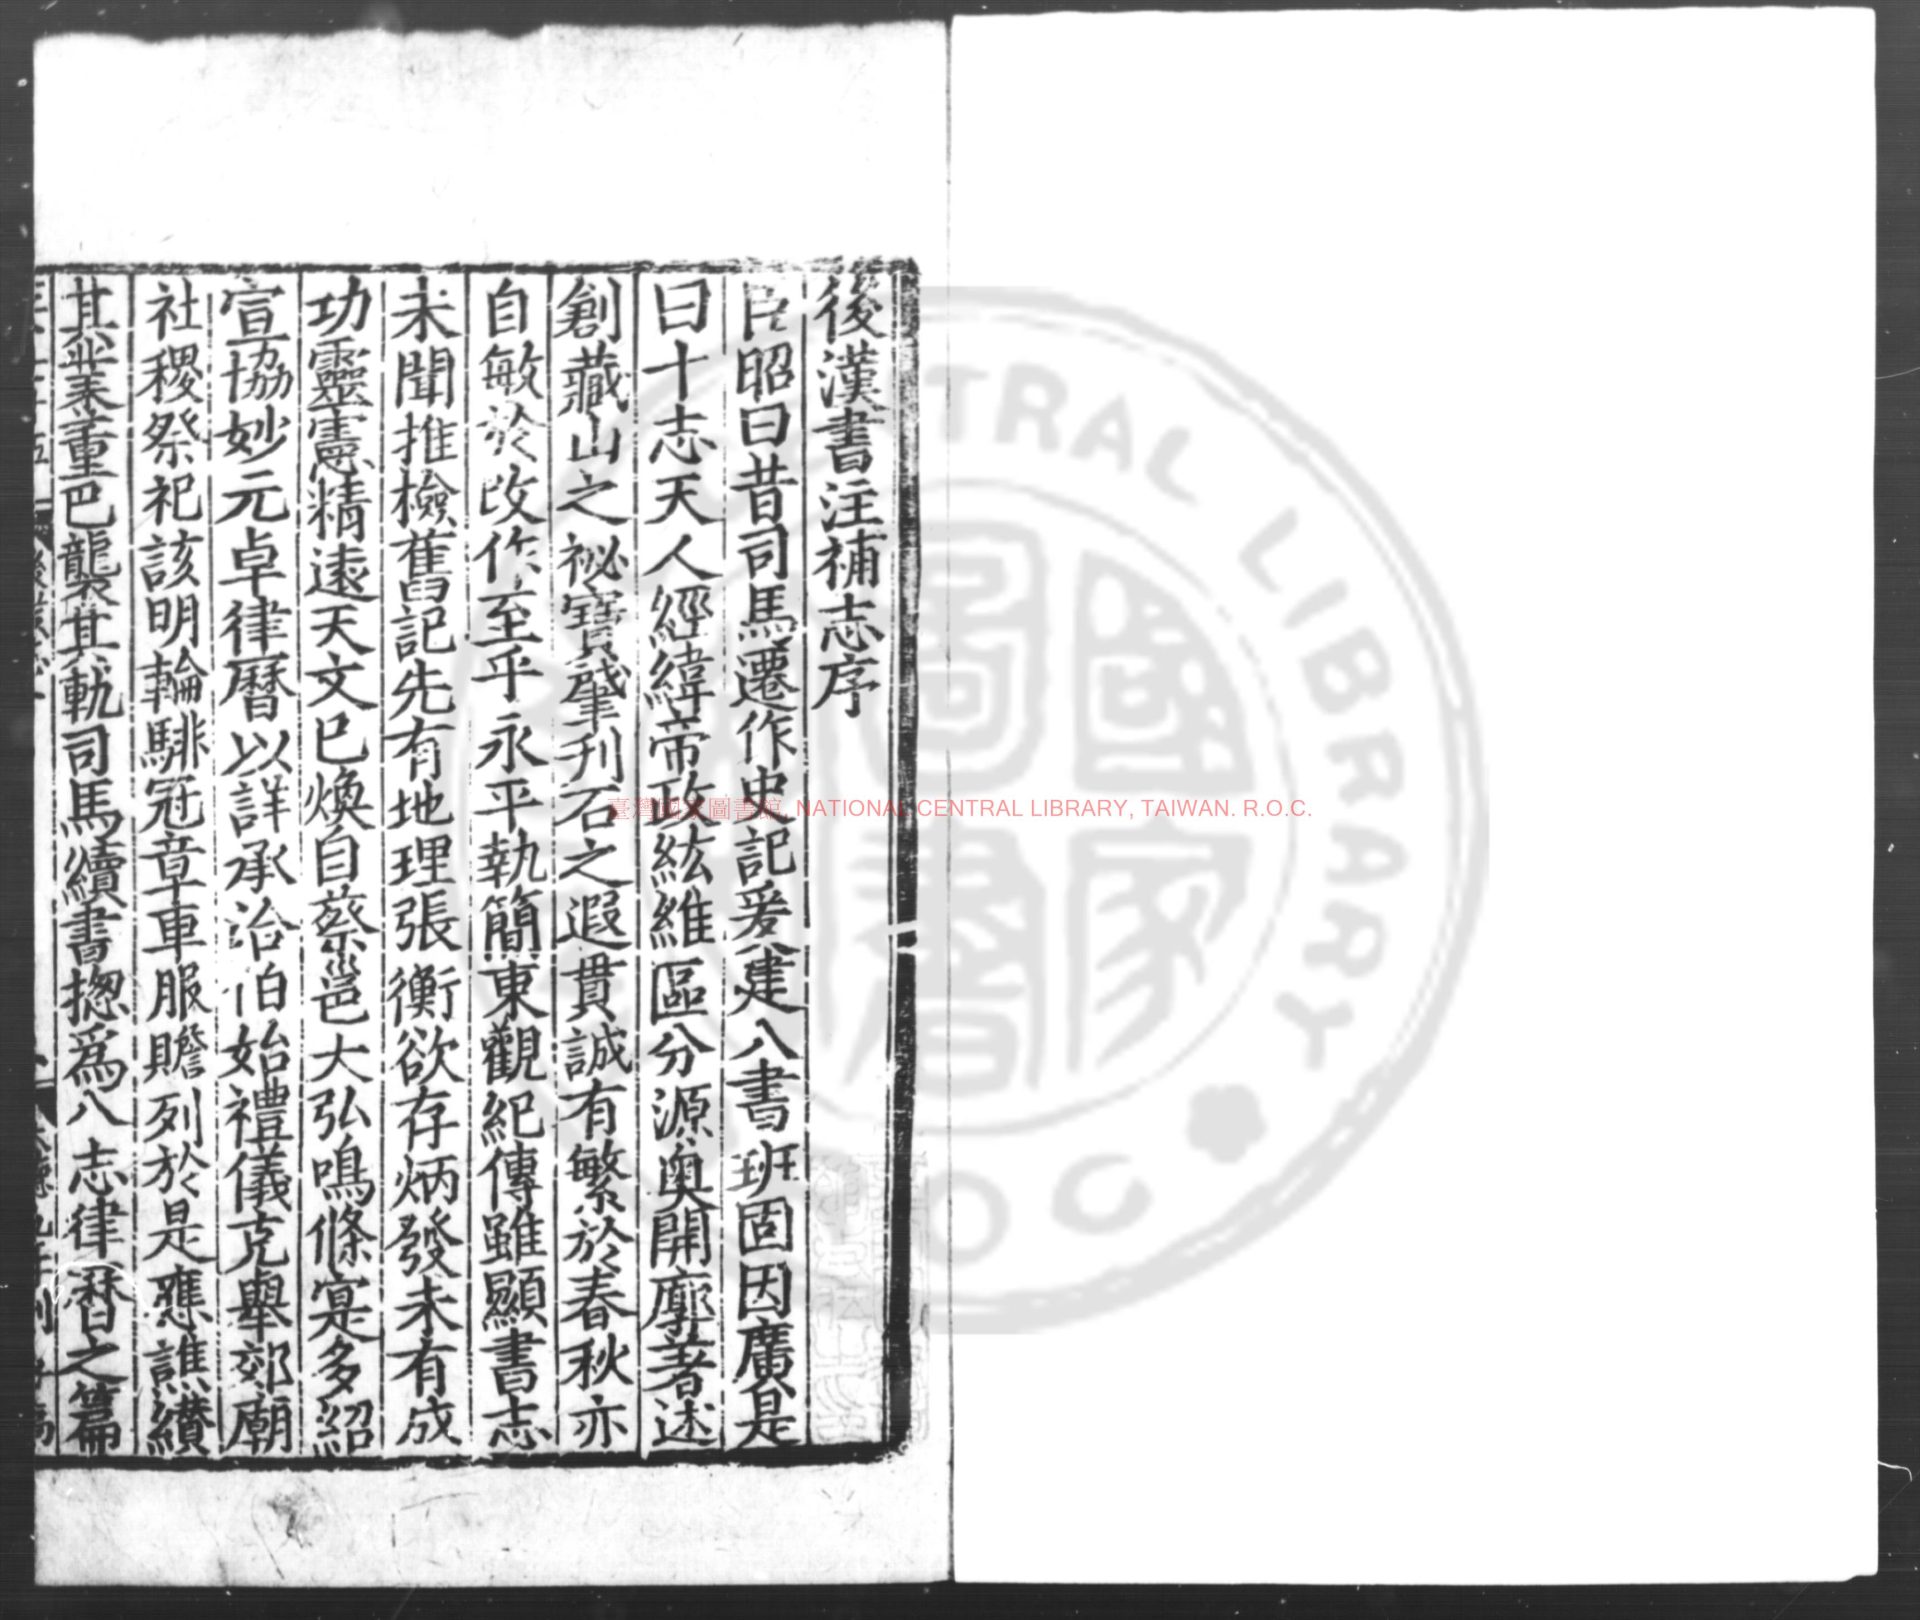 後漢書注補志序
臣昭曰昔司馬遷作史記爰建八書班固因廣是
曰十志天人經緯帝政紘維區分源奥開廓著述
創藏山之祕寶肇刋石之遐貫誠有繁於春秋亦
自敏於改作至乎永平執簡東觀紀傳雖顯書志
未聞推檢舊記先有地理張衡欲存炳發未有成
功靈憲精遠天文已煥自蔡邕大弘鳴條寔多紹
宣協妙元卓律曆以詳承洽伯始禮儀克舉郊廟
社稷祭祀該明輪騑冠章車服贍列於是應譙纘
其業董巴襲其軌司馬續書揔爲八志律曆之篇
臺灣國家圖書館, NATIONAL CENTRAL LIBRARY, TAIWAN. R.O.C.
CENTRAL LIBRARY
國家圖書